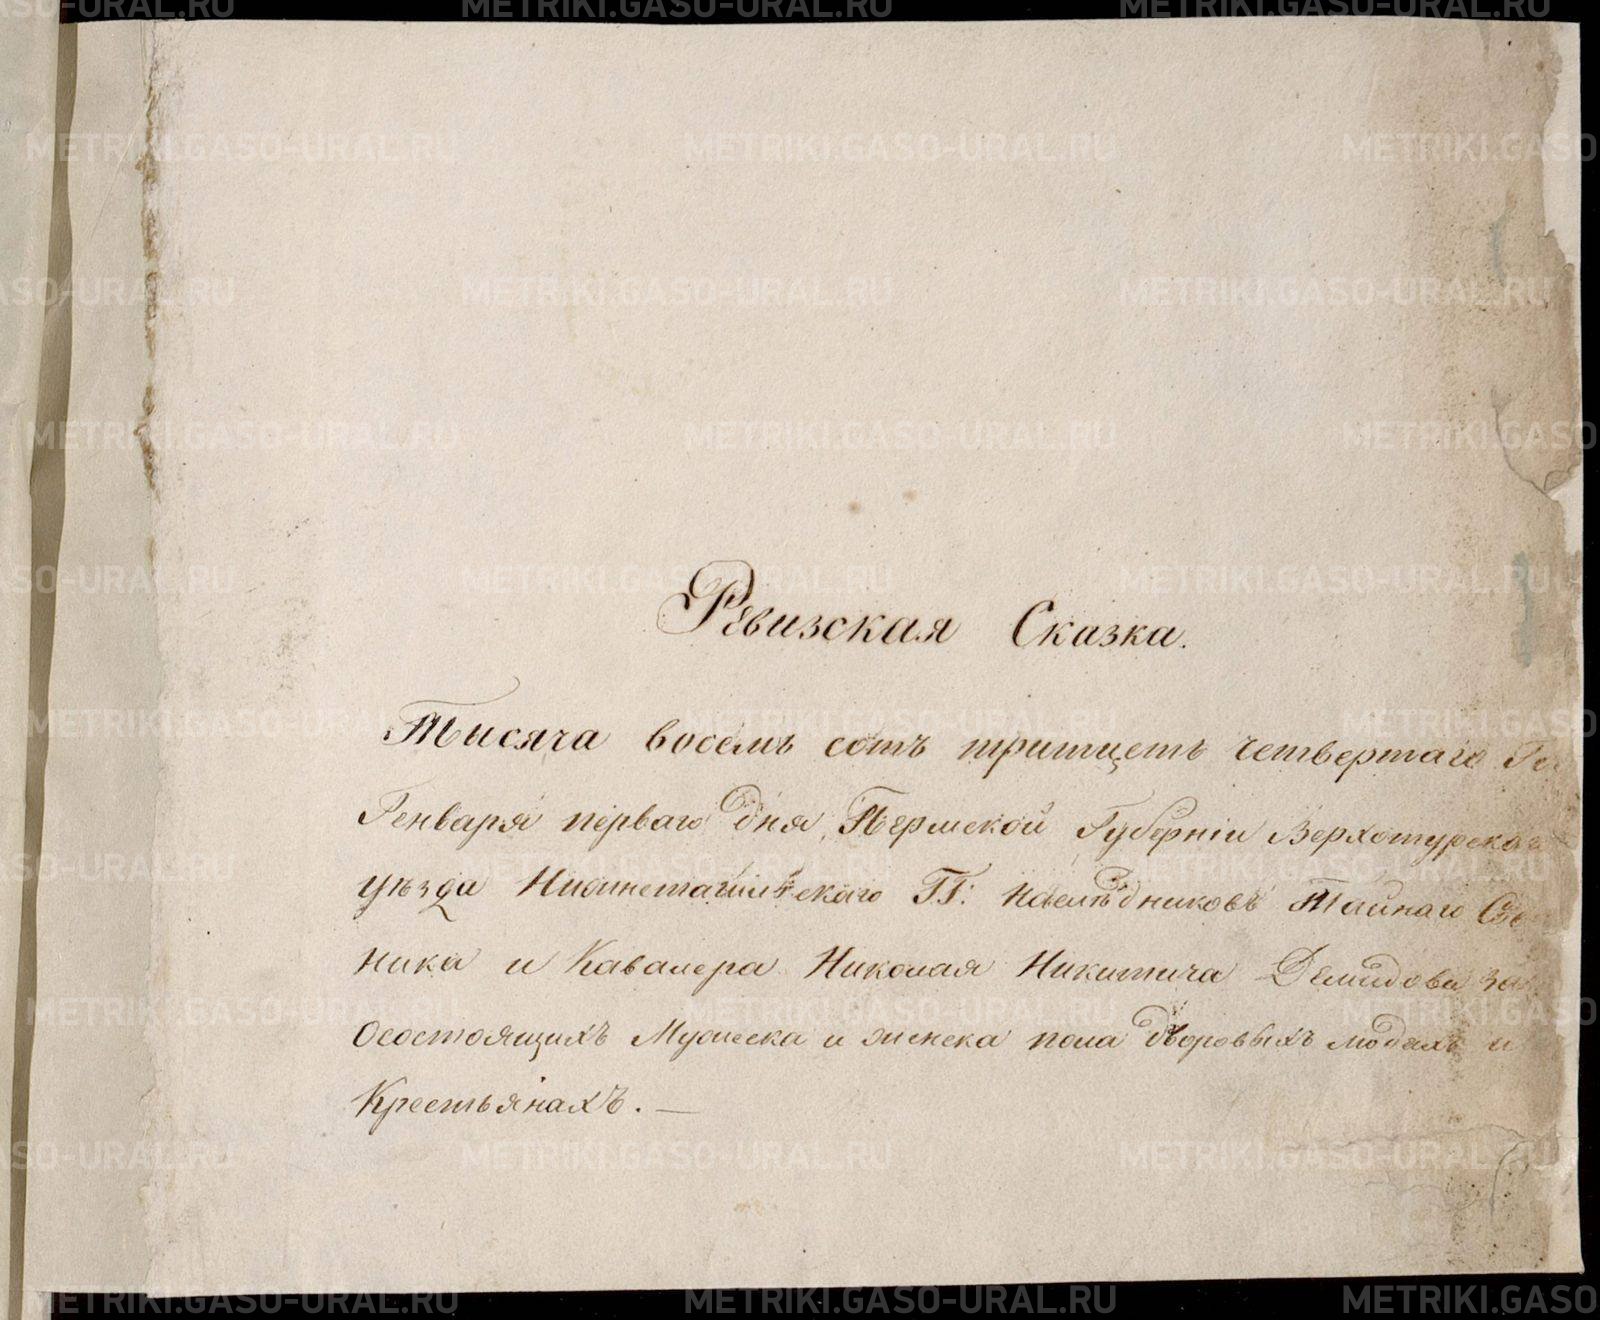 Ревизская Сказка.
Тысяча восемь сотъ тритцеть четвертаго
Генваря перваго дня, Пермской Губернiи Верхотурскаго
уѣзда Нижнетагильскаго ГГ: Наслѣдниковъ Тайнаго
ника и Кавалера Николая Никитича Демидова
осостоящихъ Мужеска и женска пола дворовыхъ людяхъ и
Крестьянахъ. —
METRIKI.GASO-URAL.RU